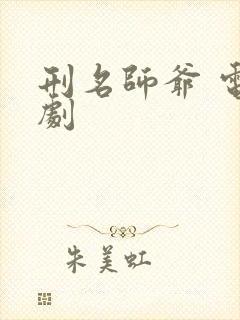 刑名師爺 電
劇
朱美虹